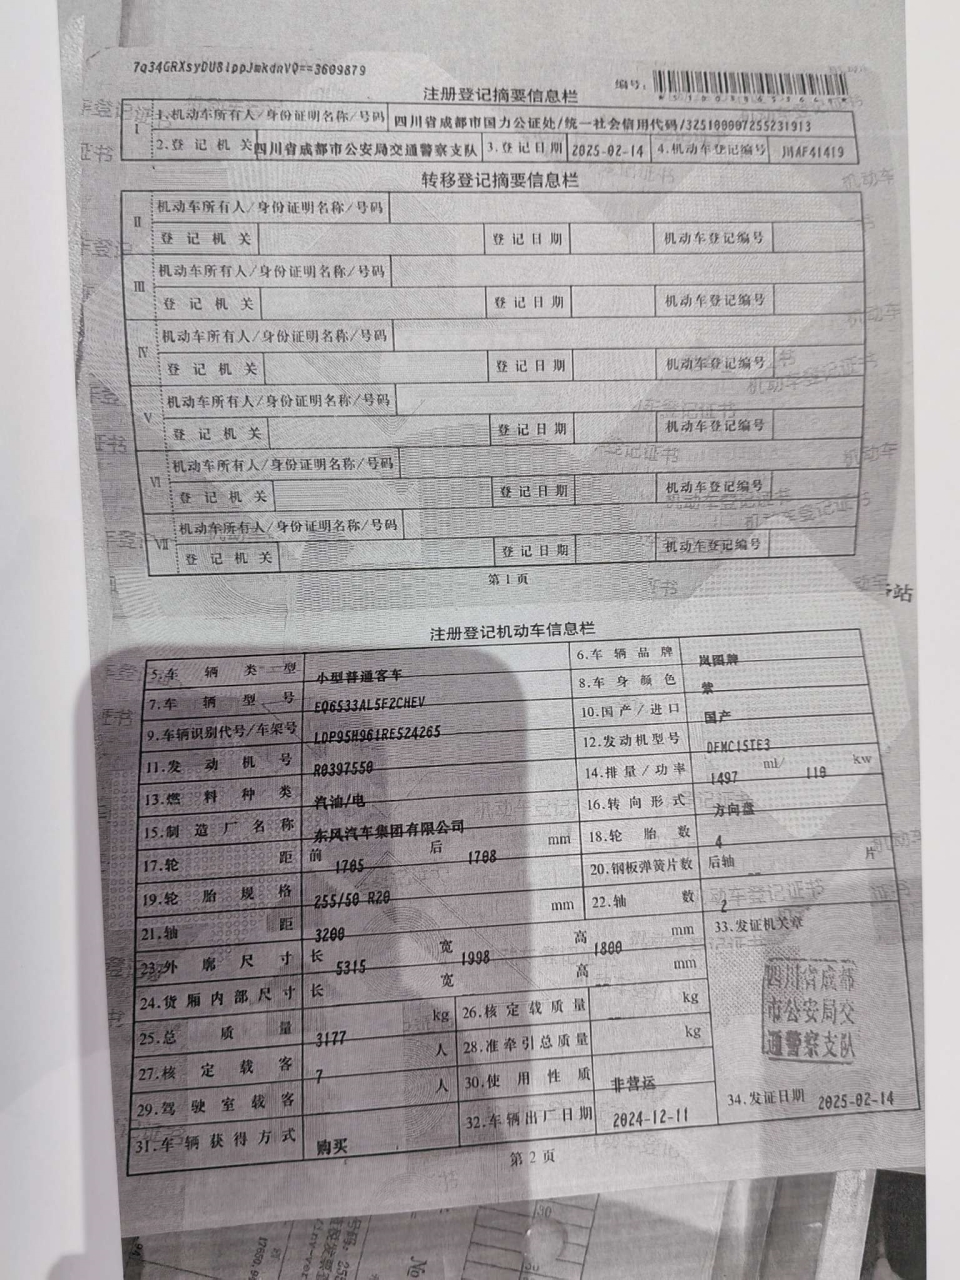 7q34GRXsyDU8lppJmkdnVQ==3609879
编号:
注册登记摘要信息栏
I
1.机动车所有人/身份证明名称/号码 四川省成都市国力公证处/统一社会信用代码/325100007255231913
2.登记机关 四川省成都市公安局交通警察支队 3.登记日期 2025-02-14 4.机动车登记编号 川AF41419
转移登记摘要信息栏
II 机动车所有人/身份证明名称/号码
登记机关 登记日期 机动车登记编号
III 机动车所有人/身份证明名称/号码
登记机关 登记日期 机动车登记编号
IV 机动车所有人/身份证明名称/号码
登记机关 登记日期 机动车登记编号
V 机动车所有人/身份证明名称/号码
登记机关 登记日期 机动车登记编号
VI 机动车所有人/身份证明名称/号码
登记机关 登记日期 机动车登记编号
VII 机动车所有人/身份证明名称/号码
登记机关 登记日期 机动车登记编号
第1页
注册登记机动车信息栏
5.车辆类型 小型普通客车 6.车辆品牌 岚图牌
7.车辆型号 EQ6533AL5F2CHEV 8.车身颜色 紫
9.车辆识别代号/车架号 LDP95H961RE524265 10.国产/进口 国产
11.发动机号 R0397550 12.发动机型号 DFMC15TE3
13.燃料种类 汽油/电 14.排量/功率 1497 ml/ 110 kw
15.制造厂名称 东风汽车集团有限公司 16.转向形式 方向盘
17.轮距 前 1705 后 1708 mm 18.轮胎数 4
19.轮胎规格 255/50 R20 20.钢板弹簧片数 后轴 -- 片
21.轴距 3200 mm 22.轴数 2
23.外廓尺寸 长 5315 宽 1998 高 1800 mm 33.发证机关章
24.货厢内部尺寸 长 宽 高 mm
25.总质量 3177 kg 26.核定载质量 -- kg
27.核定载客 7 人 28.准牵引总质量 kg
29.驾驶室载客 人 30.使用性质 非营运
31.车辆获得方式 购买 32.车辆出厂日期 2024-12-11
四川省成都
市公安局交
通警察支队
34.发证日期 2025-02-14
第2页